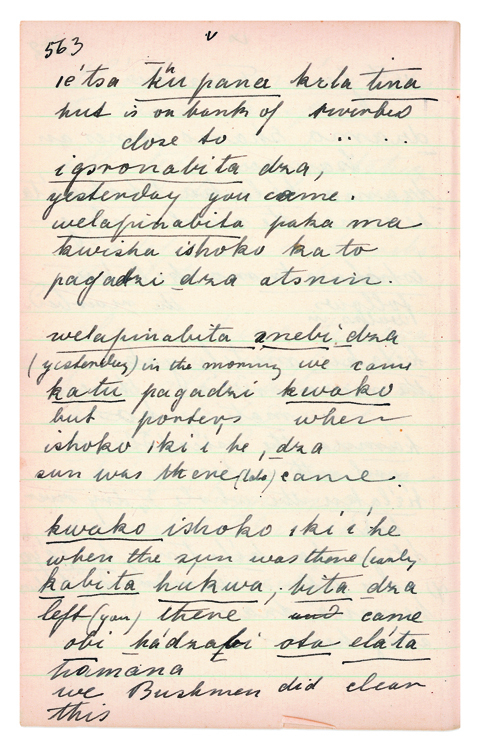 563
ié'tsa kü pana kala tina
hut is on bank of riverbed
close to
igoronabita dza,
yesterday you came.
welapinabita paka ma
kwisha ishoko ka to
pagadzi dza otsnin.
welapinabita znebi dza
(yesterday) in the morning we came
katu pagadzi kwako
but porters when
ishoko iki i' he, dza
sun was there (late) came.
kwako ishoko iki i' he
when the sun was there (early
kabita hukwa, bita dza
left (you) there and came
obi hádzabi ota eláta
hamana
we Bushmen did clear
this